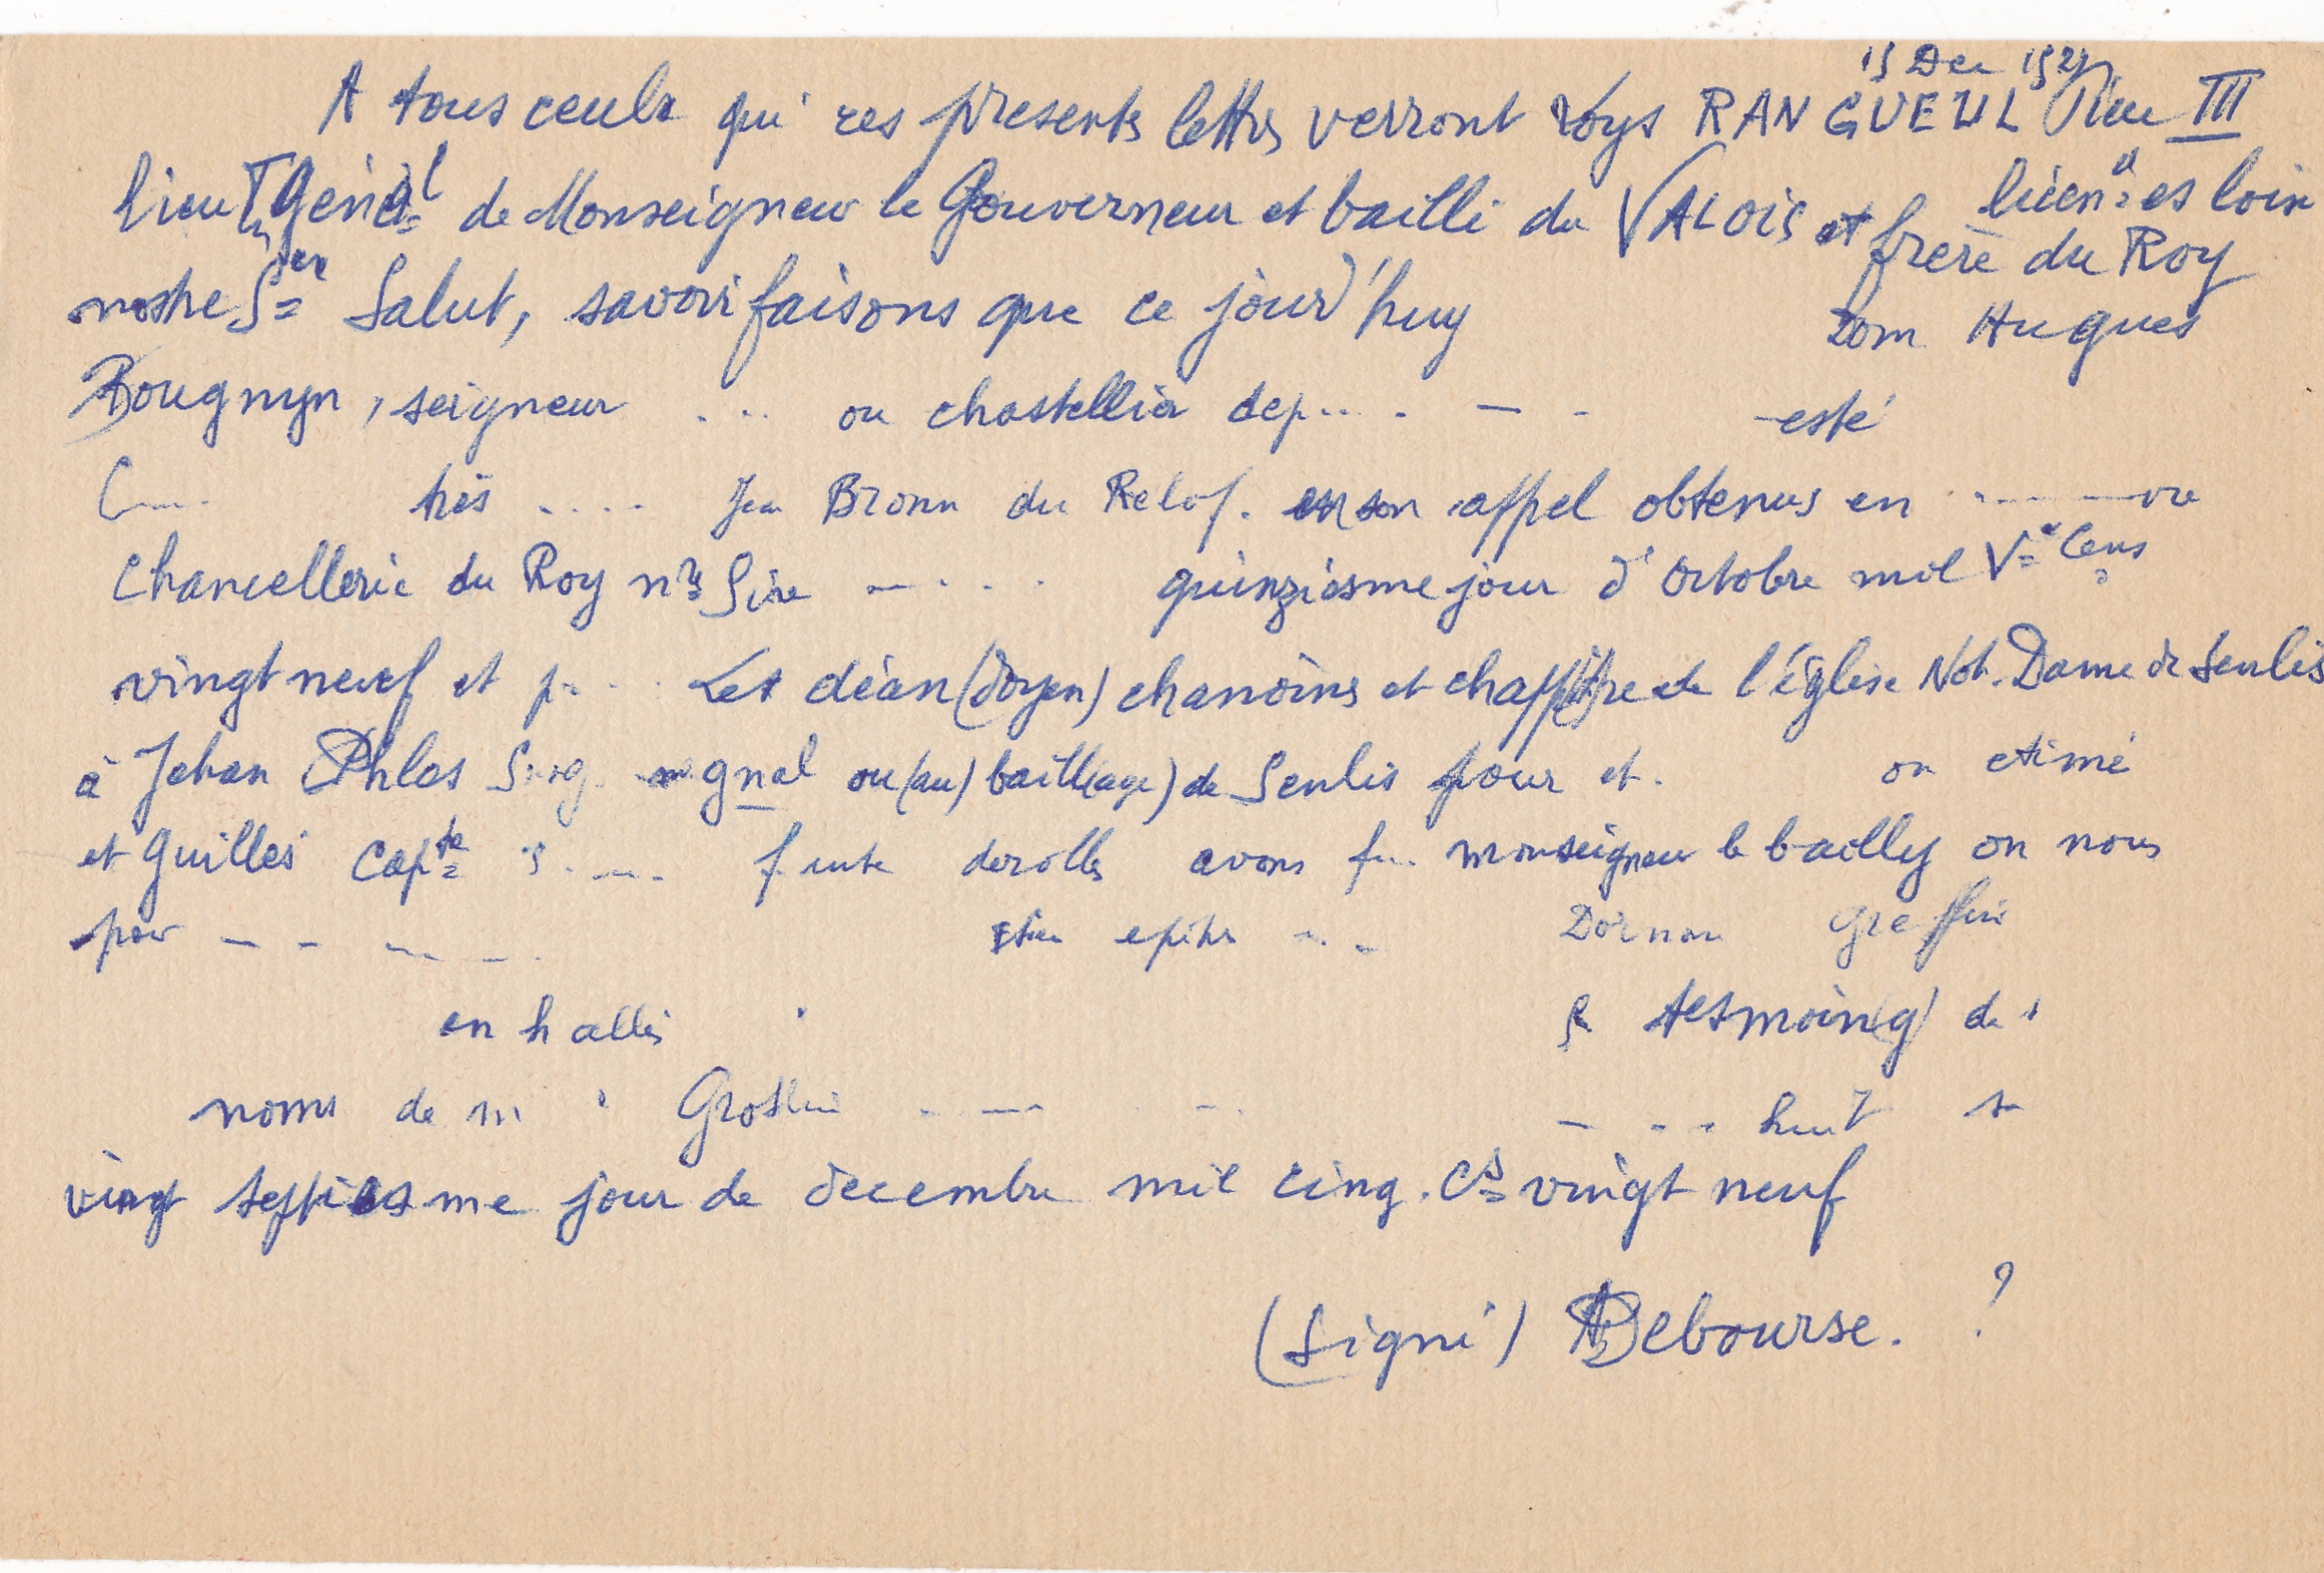 15 Dec 152
A tous ceulx qui ces presents lettres verront Loys RANGUEUL Pièce III
lieuT Génal de Monseigneur le Gouverneur et bailli du VALOIS et licen es loix
frere du Roy
nostre Ser Salut, savoir faisons que ce jourd'huy Dom Hugues
Bougnyn, seigneur .... ou chastellier dep... . - - esté
C..... très .... Jean Bronn du Relof. en son appel obtenus en ..... vre
Chancellerie du Roy nre Sire - . . . quinziesme jour d'Octobre mil Ve Cens
vingt neuf et p.... Les déan (doyen) chanoines et chappitre de l'église Not. Dame de Senlis
à Jehan Phles gnal ou (au) baill(age) de Senlis pour et. on
et Guilles Capte derolles avons f... monseigneur le bailly on nous
pour - - - - . . - Greffier
en halles tesmoin(g) de
noms de - - . . huit
vingt septiesme jour de decembre mil cinq. Cs vingt neuf
(Signé) Debourse. ?